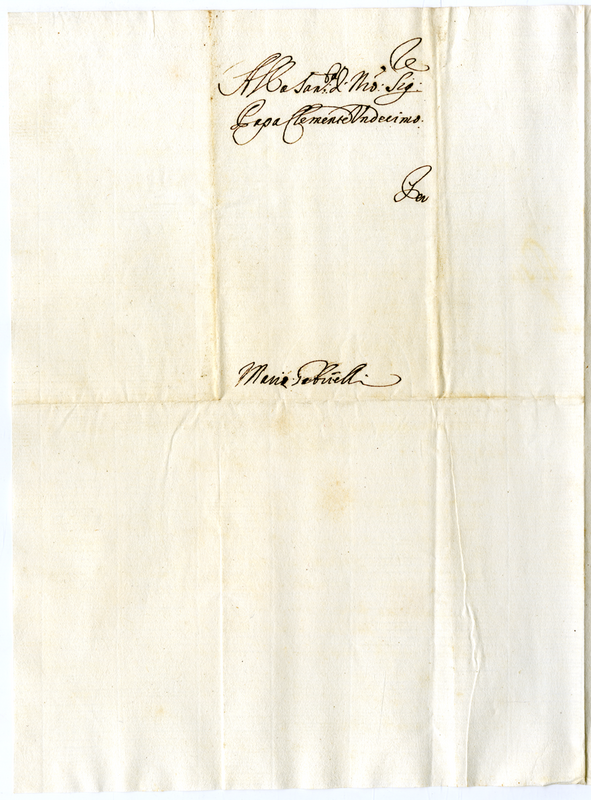 Alla San.tà di N'ro Sig.re
Papa Clemente Undecimo.
Per
Mario Gabrielli